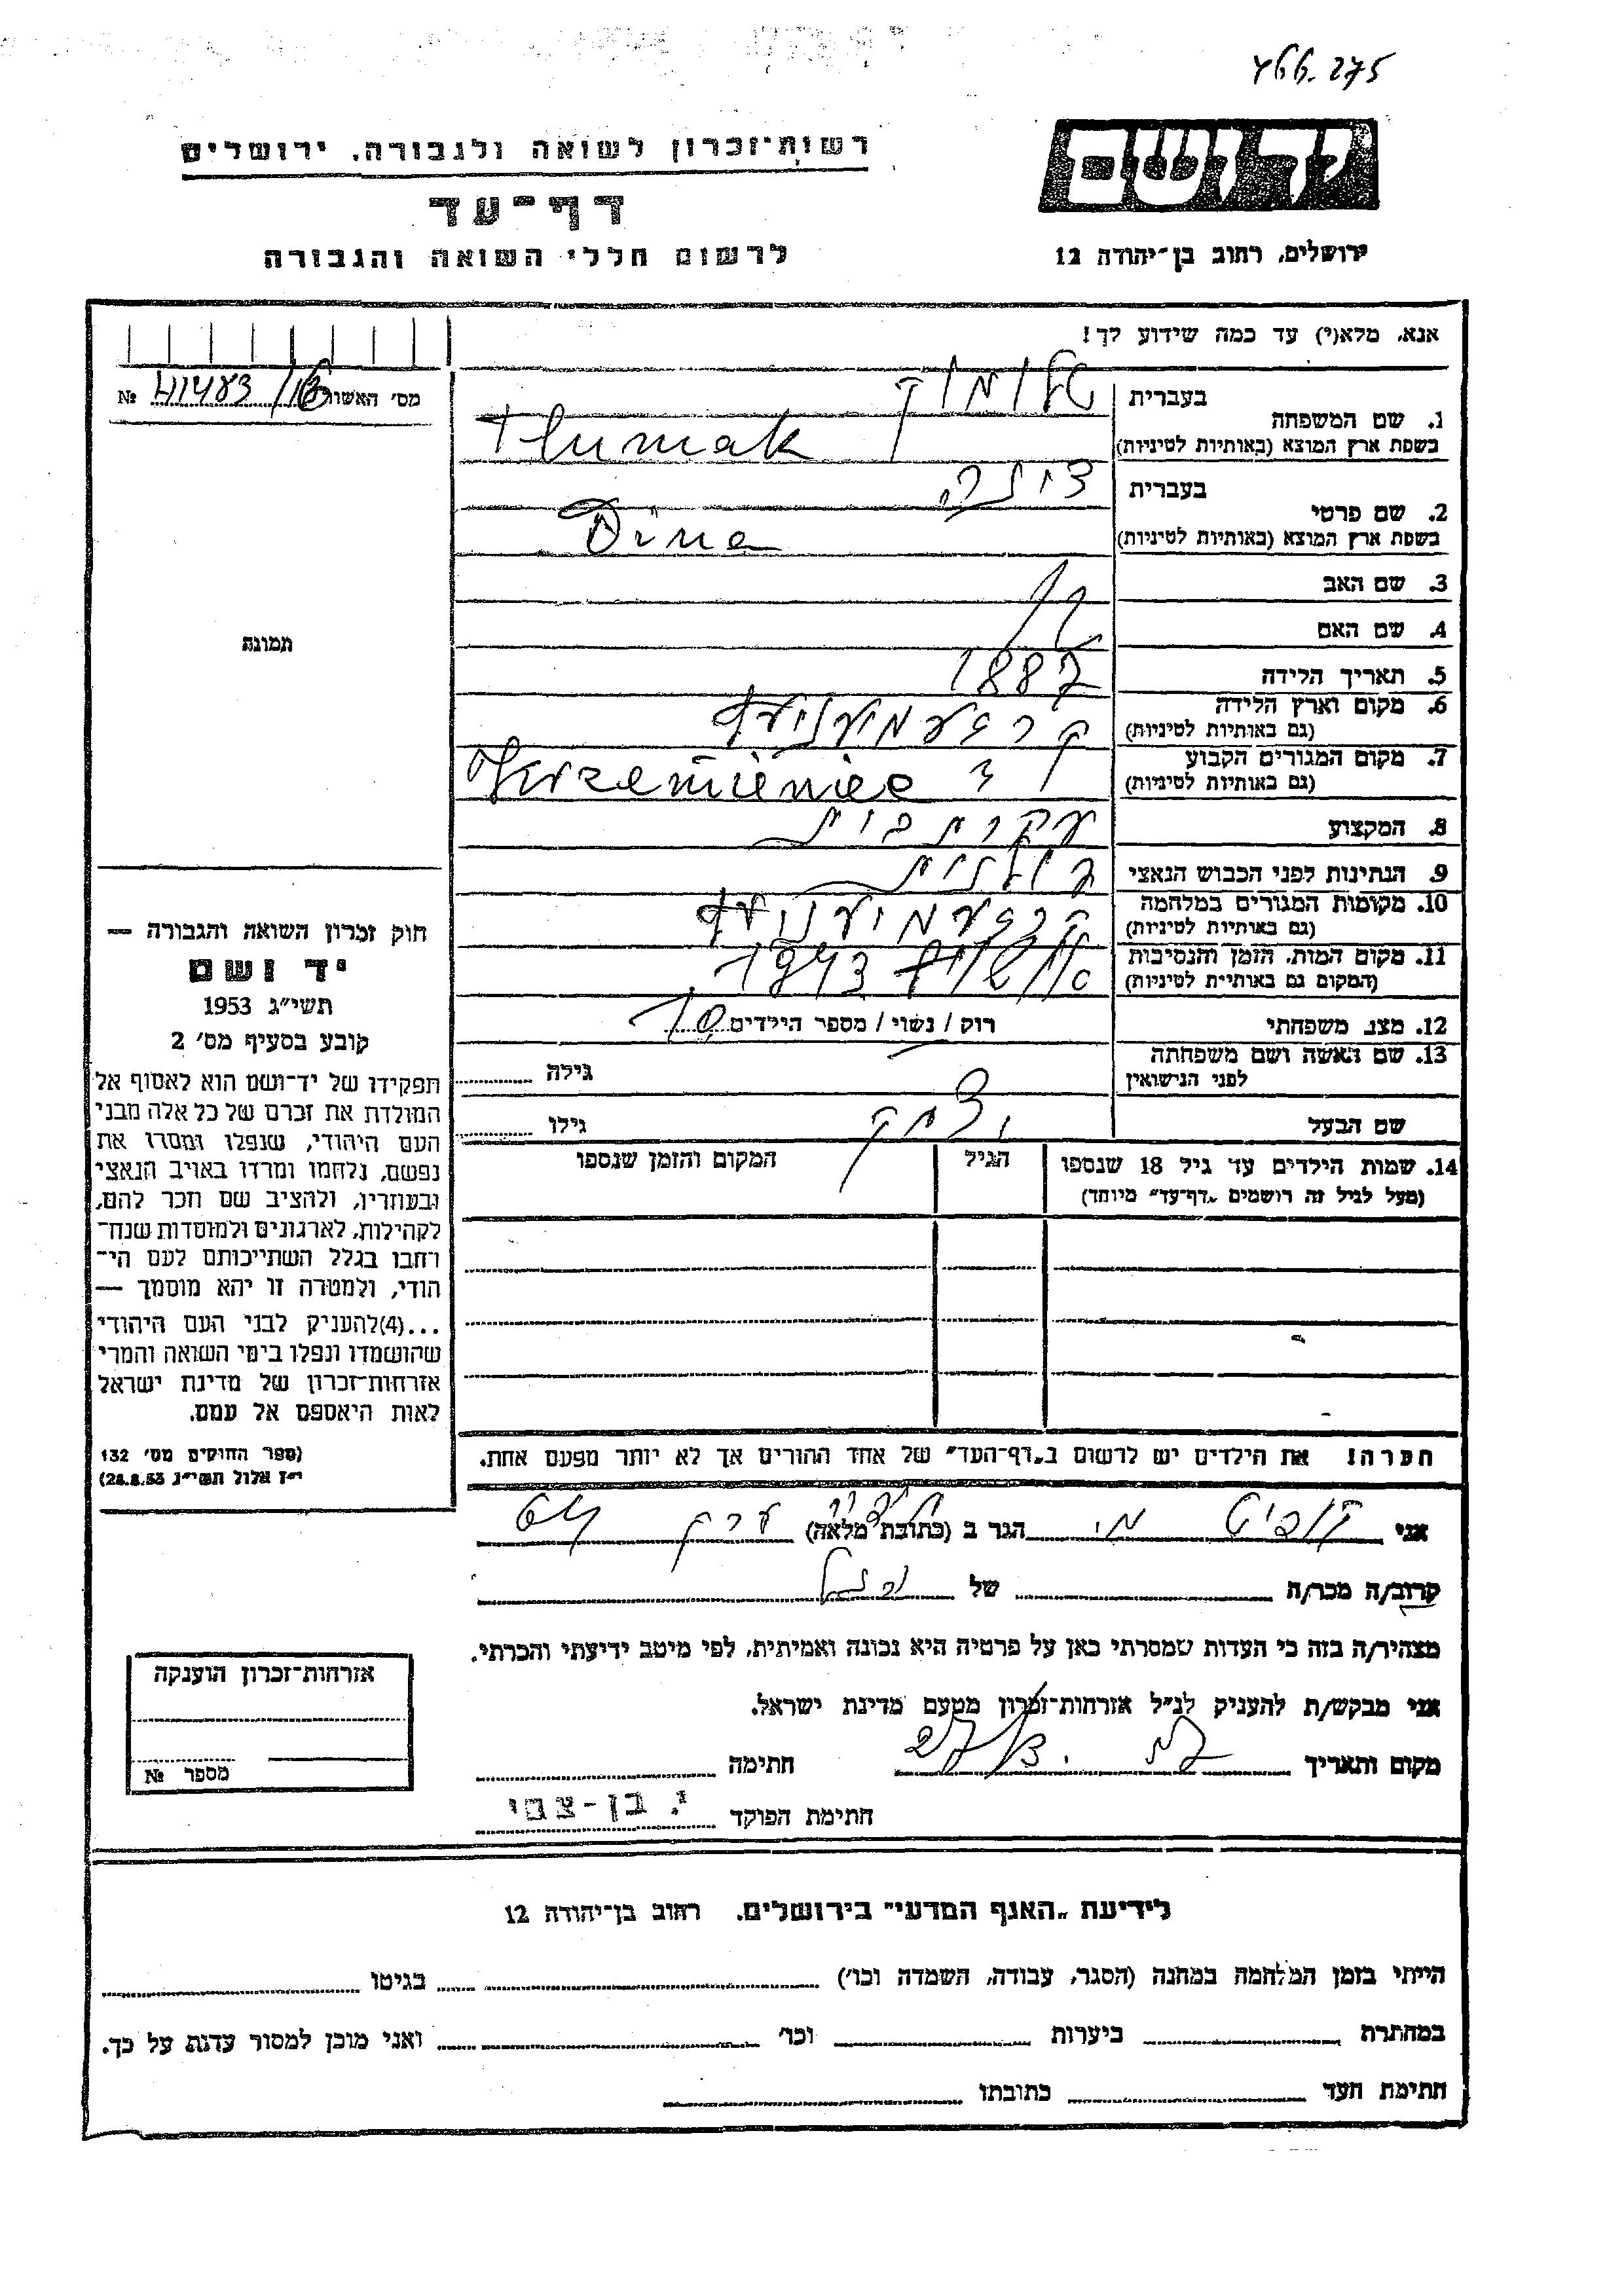 466.275
רשות־זכרון לשואה ולגבורה, ירושלים
יד ושם
דף־עד
לרשום חללי השואה והגבורה
ירושלים, רחוב בן־יהודה 12
אנא, מלא(י) עד כמה שידוע לך!
מס' האשור 41483/16 №
1. שם המשפחה
בעברית טלומק
בשפת ארץ המוצא (באותיות לטיניות) Tlumak
2. שם פרטי
בעברית דינה
בשפת ארץ המוצא (באותיות לטיניות) Dina
3. שם האב
4. שם האם
תמונה
5. תאריך הלידה 1887
6. מקום וארץ הלידה
(גם באותיות לטיניות)
7. מקום המגורים הקבוע
(גם באותיות לטיניות) Krzemieniec
8. המקצוע עקרת בית
9. הנתינות לפני הכבוש הנאצי פולנית
10. מקומות המגורים במלחמה
(גם באותיות לטיניות)
11. מקום המות, הזמן והנסיבות 1943
(המקום גם באותיות לטיניות)
12. מצב משפחתי רוק / נשוי / מספר הילדים
13. שם האשה ושם משפחתה
לפני הנישואין גילה
שם הבעל גילו
14. שמות הילדים עד גיל 18 שנספו הגיל המקום והזמן שנספו
(מעל לגיל זה רושמים „דף־עד" מיוחד)
חוק זכרון השואה והגבורה —
יד ושם
תשי"ג 1953
קובע בסעיף מס' 2
תפקידו של יד־ושם הוא לאסוף אל
המולדת את זכרם של כל אלה מבני
העם היהודי, שנפלו ומסרו את
נפשם, נלחמו ומרדו באויב הנאצי
ובעוזריו, ולהציב שם וזכר להם,
לקהילות, לארגונים ולמוסדות שנח־
רבו בגלל השתייכותם לעם הי־
הודי, ולמטרה זו יהא מוסמך —
...(4)להעניק לבני העם היהודי
שהושמדו ונפלו בימי השואה והמרי
אזרחות־זכרון של מדינת ישראל
לאות היאספם אל עמם.
(ספר החוקים מס' 132
י"ז אלול תשי"ג 28.8.53)
הערה! את הילדים יש לרשום ב„דף־העד" של אחד ההורים אך לא יותר מפעם אחת.
אני הגר ב (כתובת מלאה) 64
קרוב/ה מכר/ה של
מצהיר/ה בזה כי העדות שמסרתי כאן על פרטיה היא נכונה ואמיתית, לפי מיטב ידיעתי והכרתי.
אני מבקש/ת להעניק לנ"ל אזרחות־זכרון מטעם מדינת ישראל.
מקום ותאריך חתימה
חתימת הפוקד י. בן-צבי
אזרחות־זכרון הוענקה
מספר №
לידיעת „האגף המדעי" בירושלים, רחוב בן־יהודה 12
הייתי בזמן המלחמה במחנה (הסגר, עבודה, השמדה וכו') בגיטו
במחתרת ביערות וכו' ואני מוכן למסור עדות על כך.
חתימת העד כתובתו